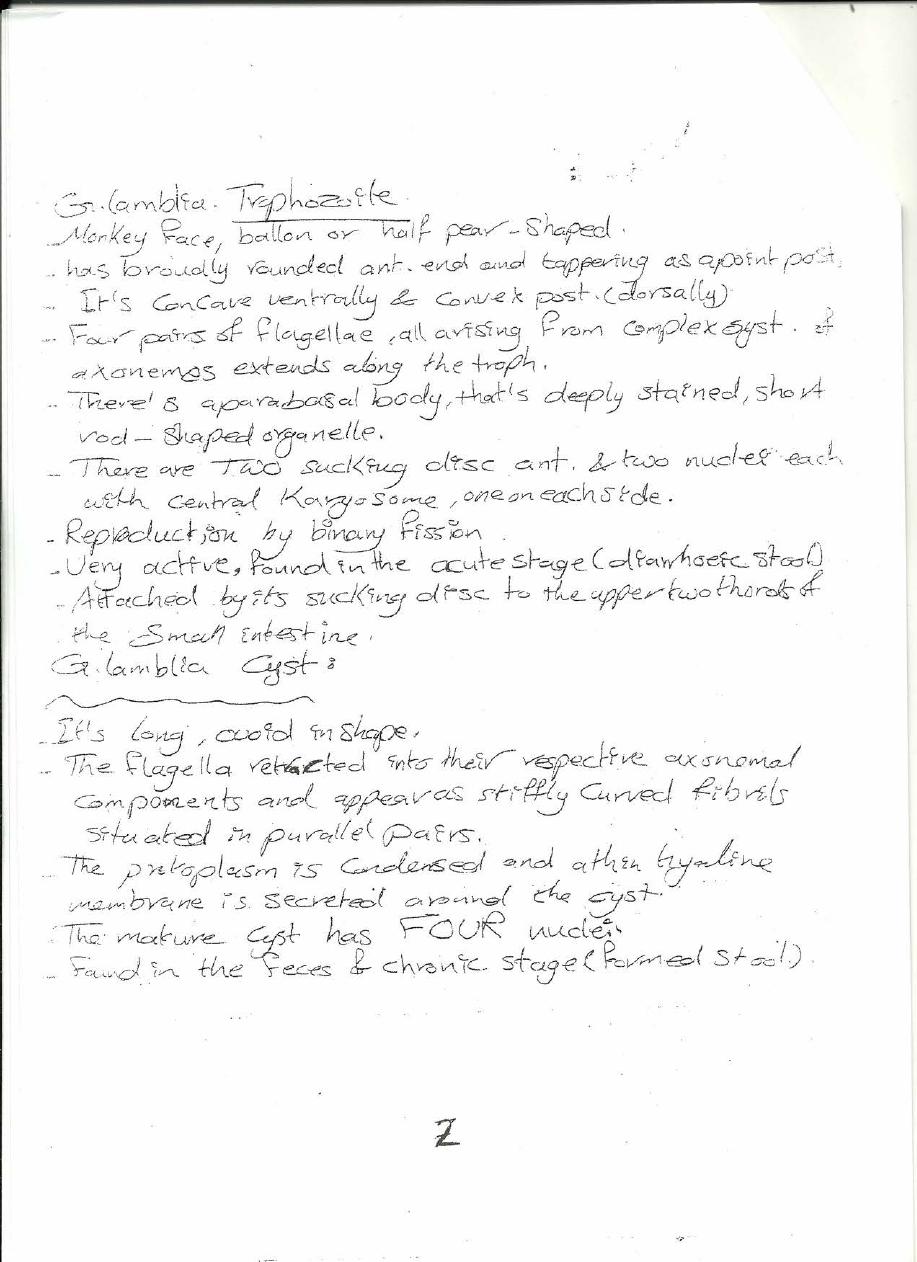 G. lamblia. Trophozoite
- Monkey face, ballon or half pear-shaped.
- has broudly rounded ant. end and tappering as apoint post.
- It's concave ventrally & convex post. (dorsally)
- Four pairs of flagellae, all arising from complex syst. of
axonemes extends along the troph.
- There's aparabasal body, that's deeply stained, short
rod-shaped organelle.
- There are TWO sucking disc ant. & two nuclei each
with central Karyosome, one on each side.
- Reproduction by binary fission.
- Very active, found in the acute stage (diarrhoeic stool)
- Attached by its sucking disc to the upper two thirds of
the Small intestine.
G. lamblia Cyst:
- It's long, ovoid in shape.
- The flagella retracted into their respective axonemal
components and appear as stiffly curved fibrils
situated in parallel pairs.
- The protoplasm is condensed and athin hyaline
membrane is secreted around the cyst.
- The mature cyst has FOUR nuclei.
- Found in the feces & chronic stage (formed stool).
2